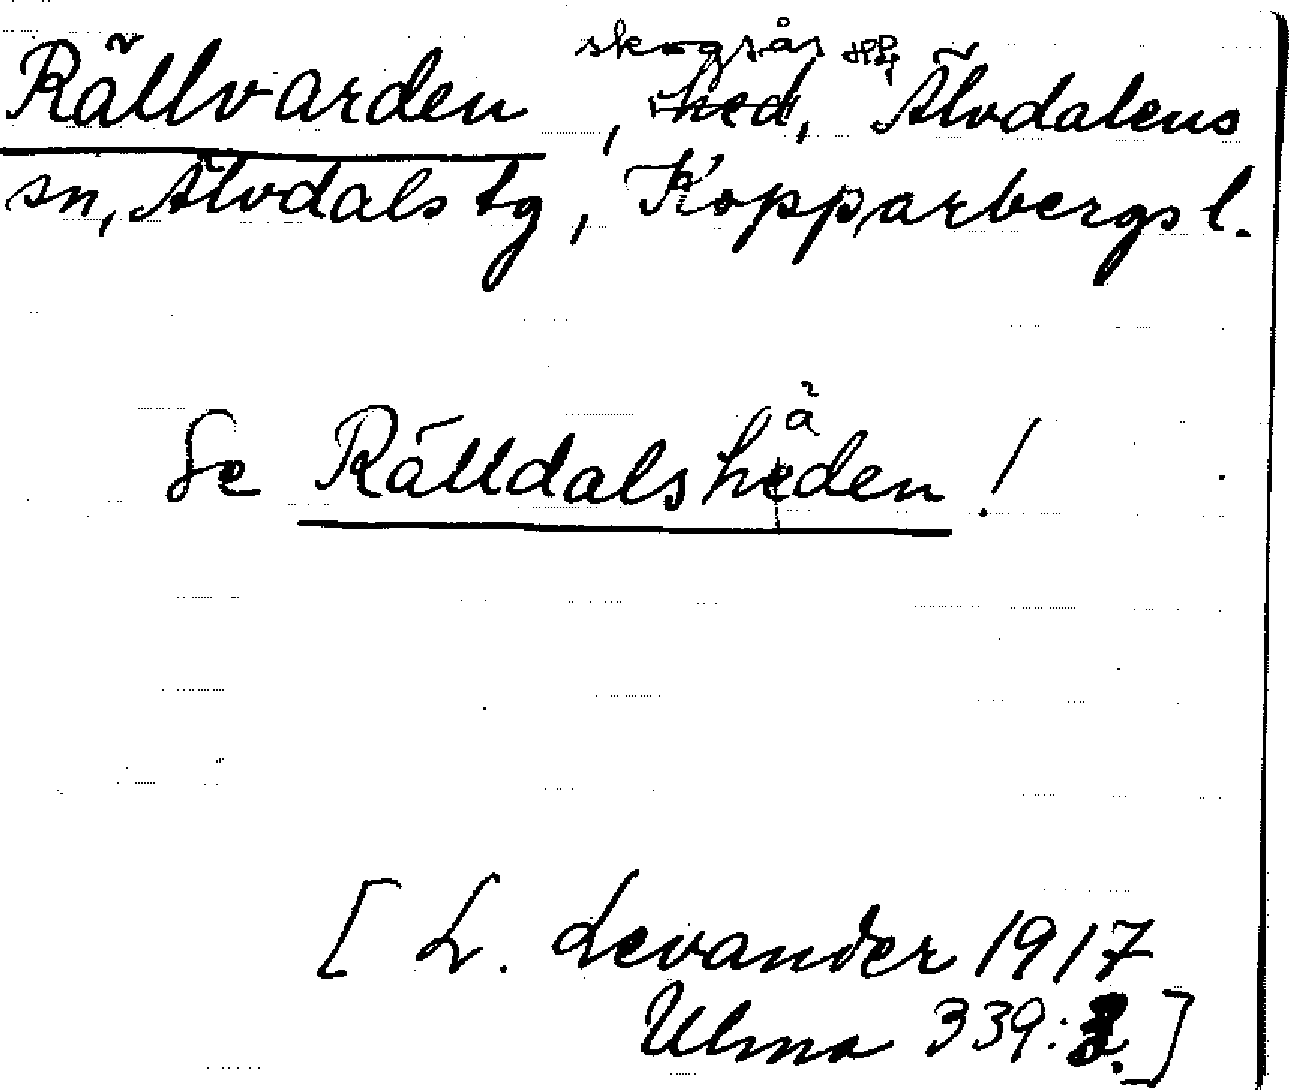 skogsår
Rällvarden, hed, Älvdalens
sn, Älvdals tg, Kopparbergs l.
ä
Se Rälldalsheden!
[L. Levander 1917
Ulma 339:3.]